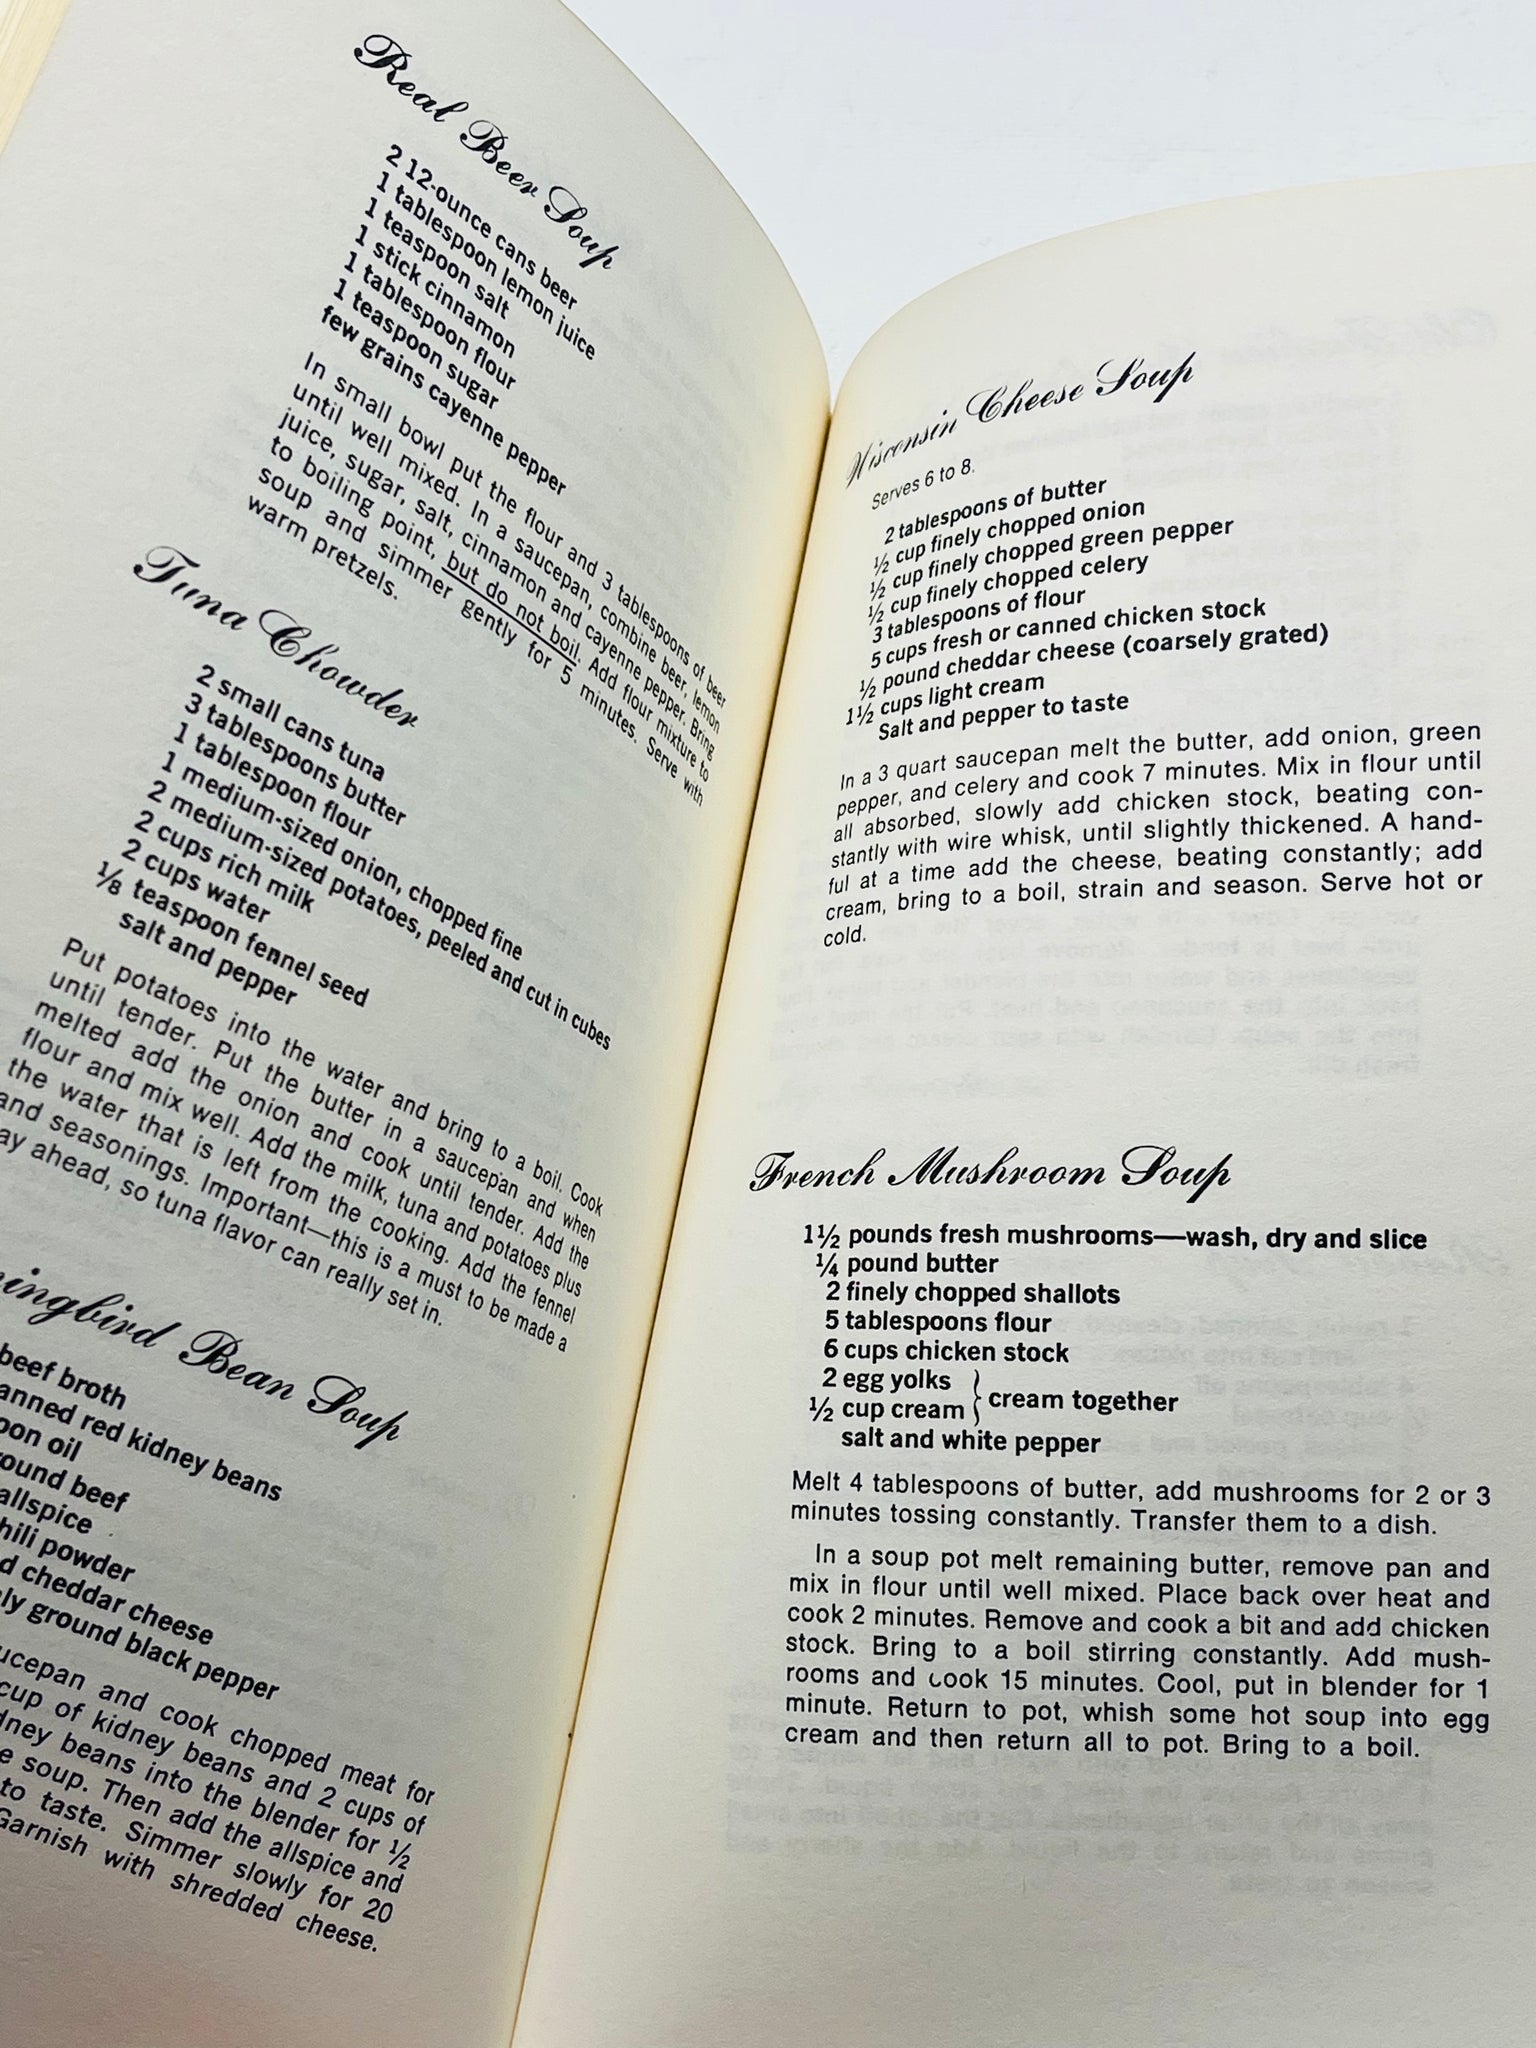 Real Beer Soup
2 12-ounce cans beer
1 tablespoon lemon juice
1 teaspoon salt
1 stick cinnamon
1 tablespoon flour
1 teaspoon sugar
few grains cayenne pepper
In small bowl put the flour and 3 tablespoons of beer
until well mixed. In a saucepan, combine beer, lemon
juice, sugar, salt, cinnamon and cayenne pepper. Bring
to boiling point, but do not boil. Add flour mixture to
soup and simmer gently for 5 minutes. Serve with
warm pretzels.
Tuna Chowder
2 small cans tuna
3 tablespoons butter
1 tablespoon flour
1 medium-sized onion, chopped fine
2 medium-sized potatoes, peeled and cut in cubes
2 cups rich milk
2 cups water
⅛ teaspoon fennel seed
salt and pepper
Put potatoes into the water and bring to a boil. Cook
until tender. Put the butter in a saucepan and when
melted add the onion and cook until tender. Add the
flour and mix well. Add the milk, tuna and potatoes plus
the water that is left from the cooking. Add the fennel
and seasonings. Important—this is a must to be made a
ay ahead, so tuna flavor can really set in.
ingbird Bean Soup
beef broth
anned red kidney beans
oon oil
ound beef
allspice
hili powder
d cheddar cheese
ly ground black pepper
ucepan and cook chopped meat for
cup of kidney beans and 2 cups of
dney beans into the blender for ½
e soup. Then add the allspice and
to taste. Simmer slowly for 20
Garnish with shredded cheese.
Wisconsin Cheese Soup
Serves 6 to 8.
2 tablespoons of butter
½ cup finely chopped onion
½ cup finely chopped green pepper
½ cup finely chopped celery
3 tablespoons of flour
5 cups fresh or canned chicken stock
½ pound cheddar cheese (coarsely grated)
1½ cups light cream
Salt and pepper to taste
In a 3 quart saucepan melt the butter, add onion, green
pepper, and celery and cook 7 minutes. Mix in flour until
all absorbed, slowly add chicken stock, beating con-
stantly with wire whisk, until slightly thickened. A hand-
ful at a time add the cheese, beating constantly; add
cream, bring to a boil, strain and season. Serve hot or
cold.
French Mushroom Soup
1½ pounds fresh mushrooms—wash, dry and slice
¼ pound butter
2 finely chopped shallots
5 tablespoons flour
6 cups chicken stock
2 egg yolks
½ cup cream } cream together
salt and white pepper
Melt 4 tablespoons of butter, add mushrooms for 2 or 3
minutes tossing constantly. Transfer them to a dish.
In a soup pot melt remaining butter, remove pan and
mix in flour until well mixed. Place back over heat and
cook 2 minutes. Remove and cook a bit and add chicken
stock. Bring to a boil stirring constantly. Add mush-
rooms and cook 15 minutes. Cool, put in blender for 1
minute. Return to pot, whish some hot soup into egg
cream and then return all to pot. Bring to a boil.